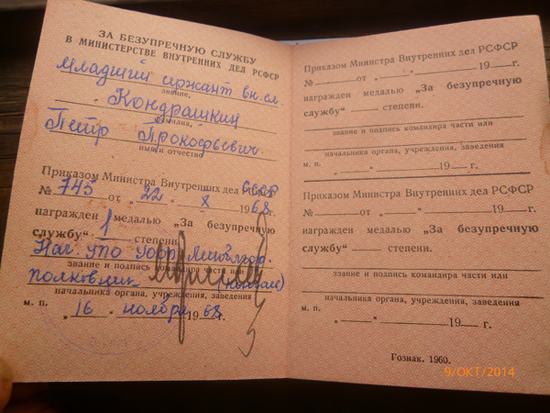 ЗА БЕЗУПРЕЧНУЮ СЛУЖБУ
В МИНИСТЕРСТВЕ ВНУТРЕННИХ ДЕЛ РСФСР
Младший сержант вн. сл.
звание,
Кондрашкин
фамилия,
Петр Прокофьевич
имя и отчество
Приказом Министра Внутренних дел СССР
№ 745 от „22“ X 1968 г.
награжден I медалью „За безупречную
службу“ степени.
Нач УПО
звание и подпись командира части или
полковник
начальника органа, учреждения, заведения
м. п. „16“ ноября 1968 г.
Приказом Министра Внутренних дел РСФСР
№— от „—“ — 19— г.
награжден медалью „За безупречную
службу“ — степени.
звание и подпись командира части или
начальника органа, учреждения, заведения
м. п. „—“ — 19— г.
Приказом Министра Внутренних дел РСФСР
№— от „—“ — 19— г.
награжден медалью „За безупречную
службу“ — степени.
звание и подпись командира части или
начальника органа, учреждения, заведения
м. п. „—“ — 19— г.
Гознак. 1960.
9/ОКТ/2014